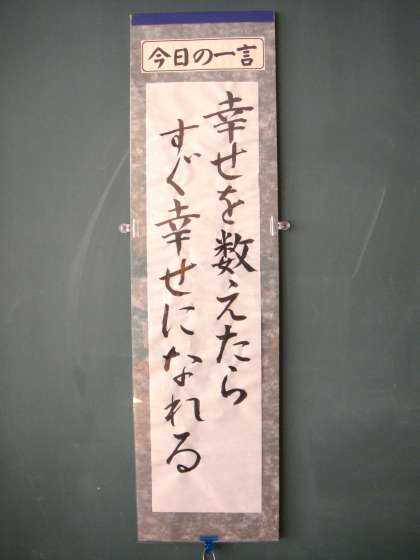 今日の一言
幸せを数えたら
すぐ幸せになれる